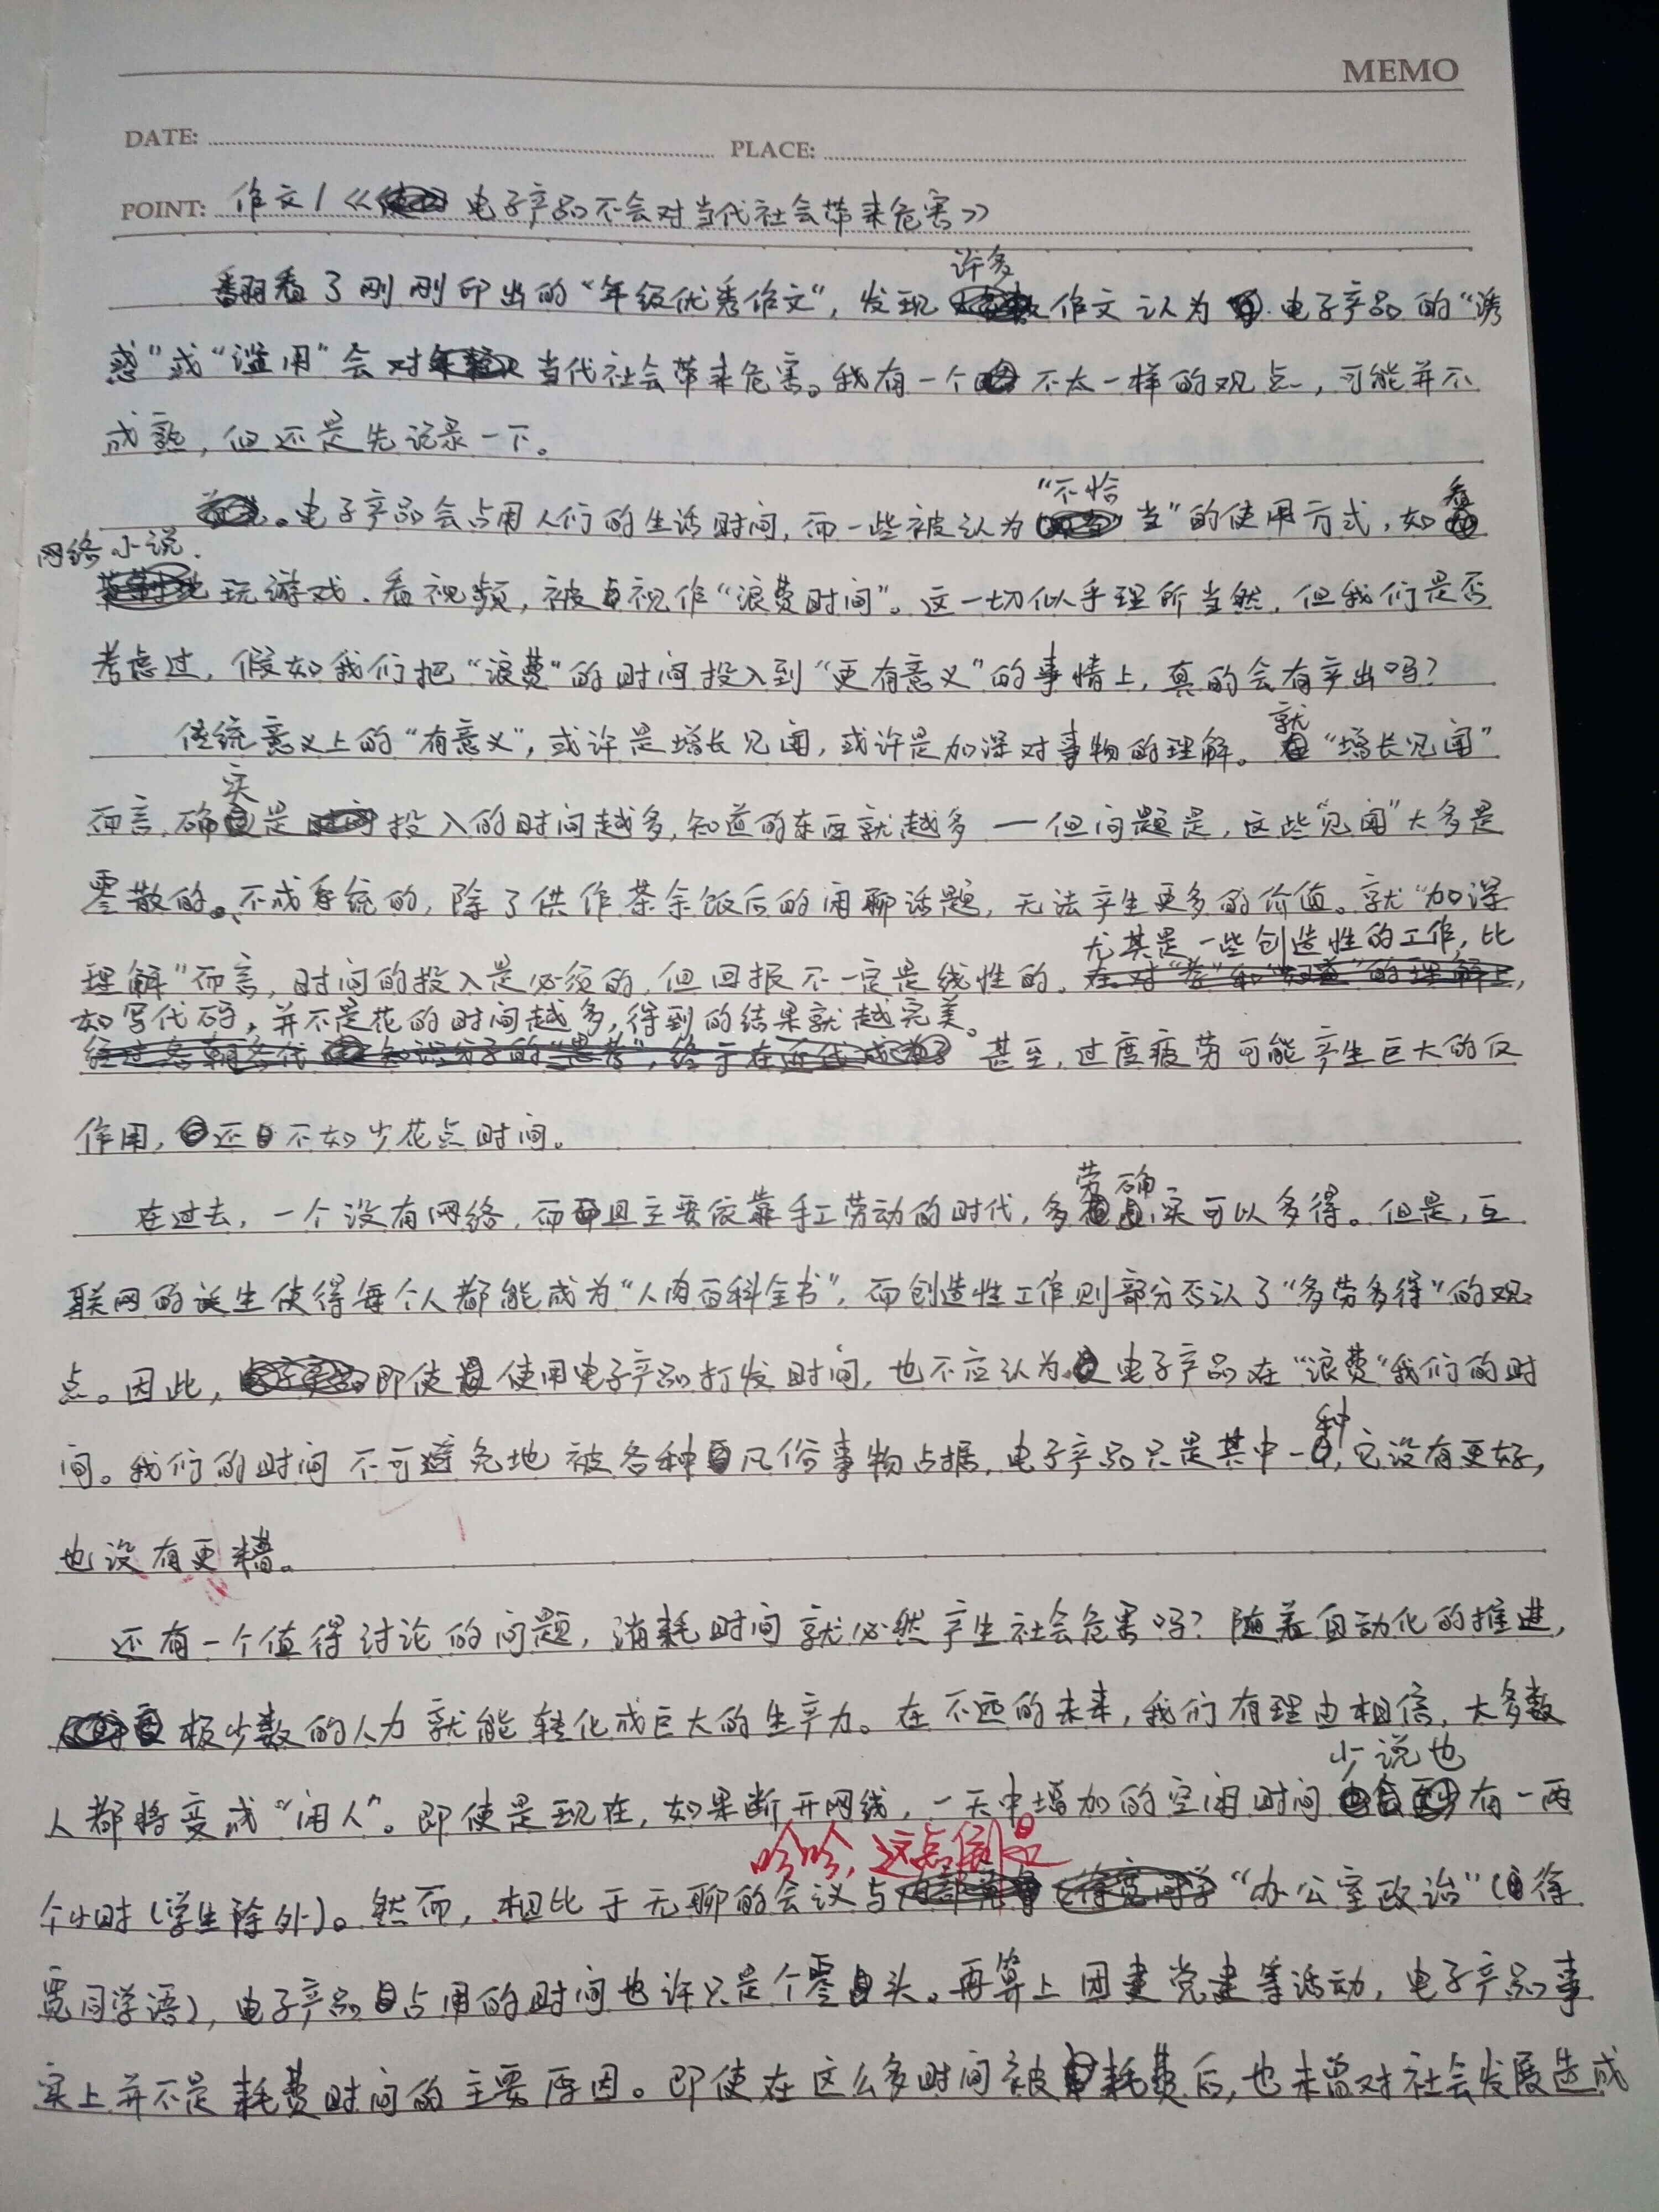 MEMO
DATE:
PLACE:
POINT: 作文1《电子产品不会对当代社会带来危害》
翻看了刚刚印出的“年级优秀作文”，发现许多作文认为电子产品的“诱
惑”或“滥用”会对当代社会带来危害。我有一个不太一样的观点，可能并不
成熟，但还是先记录一下。
电子产品会占用人们的生活时间，而一些被认为“不恰当”的使用方式，如看
网络小说、玩游戏、看视频，被视作“浪费时间”。这一切似乎理所当然，但我们是否
考虑过，假如我们把“浪费”的时间投入到“更有意义”的事情上，真的会有产出吗？
传统意义上的“有意义”，或许是增长见闻，或许是加深对事物的理解。就“增长见闻”
而言，确实是投入的时间越多，知道的东西就越多——但问题是，这些“见闻”大多是
零散的、不成系统的，除了供作茶余饭后的闲聊话题，无法产生更多的价值。就“加深
理解”而言，时间的投入是必须的，但回报不一定是线性的。尤其是一些创造性的工作，比
如写代码，并不是花的时间越多，得到的结果就越完美。甚至，过度疲劳可能产生巨大的反
作用，还不如少花点时间。
在过去，一个没有网络，而且主要依靠手工劳动的时代，多劳确实可以多得。但是，互
联网的诞生使得每个人都能成为“人肉百科全书”，而创造性工作则部分否认了“多劳多得”的观
点。因此，即使使用电子产品打发时间，也不应认为电子产品在“浪费”我们的时
间。我们的时间不可避免地被各种凡俗事物占据，电子产品只是其中一种，它没有更好，
也没有更糟。
还有一个值得讨论的问题，消耗时间就必然产生社会危害吗？随着自动化的推进，
极少数的人力就能转化成巨大的生产力。在不远的未来，我们有理由相信，大多数
人都将变成“闲人”。即使是现在，如果断开网线，一天中增加的空闲时间少说也有一两
个小时（学生除外）。然而，相比于无聊的会议与“办公室政治”（徐
哈哈，这点倒是
霓同学语），电子产品占用的时间也许只是个零头。再算上团建党建等活动，电子产品事
实上并不是耗费时间的主要原因。即使在这么多时间被耗费后，也未曾对社会发展造成